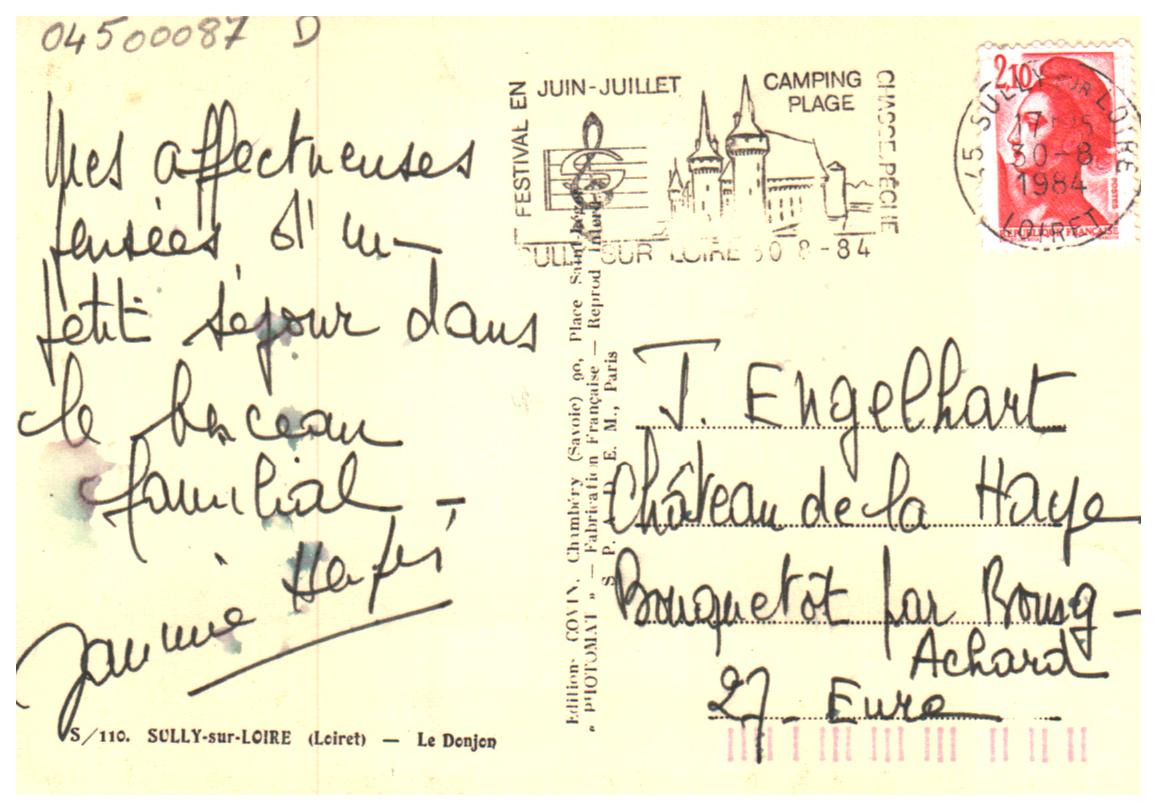 04500087 D
Mes affectueuses
pensées d'un
petit séjour dans
le berceau
familial -
Jannie
S/110. SULLY-sur-LOIRE (Loiret) — Le Donjon
FESTIVAL EN
JUIN-JUILLET
CAMPING
PLAGE
CHASSE, PÊCHE
SULLY SUR LOIRE 30 8 - 84
2,10
POSTES
REPUBLIQUE FRANÇAISE
45 SULLY SUR LOIRE
30-8
1984
LOIRET
Edition
Chambéry (Savoie) 90, Place
« PHOTOMAT » — Fabrication Française — Reprod
S. P. A. D. E. M., Paris
J. Engelhart
Château de la Haye
Bouquetot par Bourg-
Achard
27 - Eure